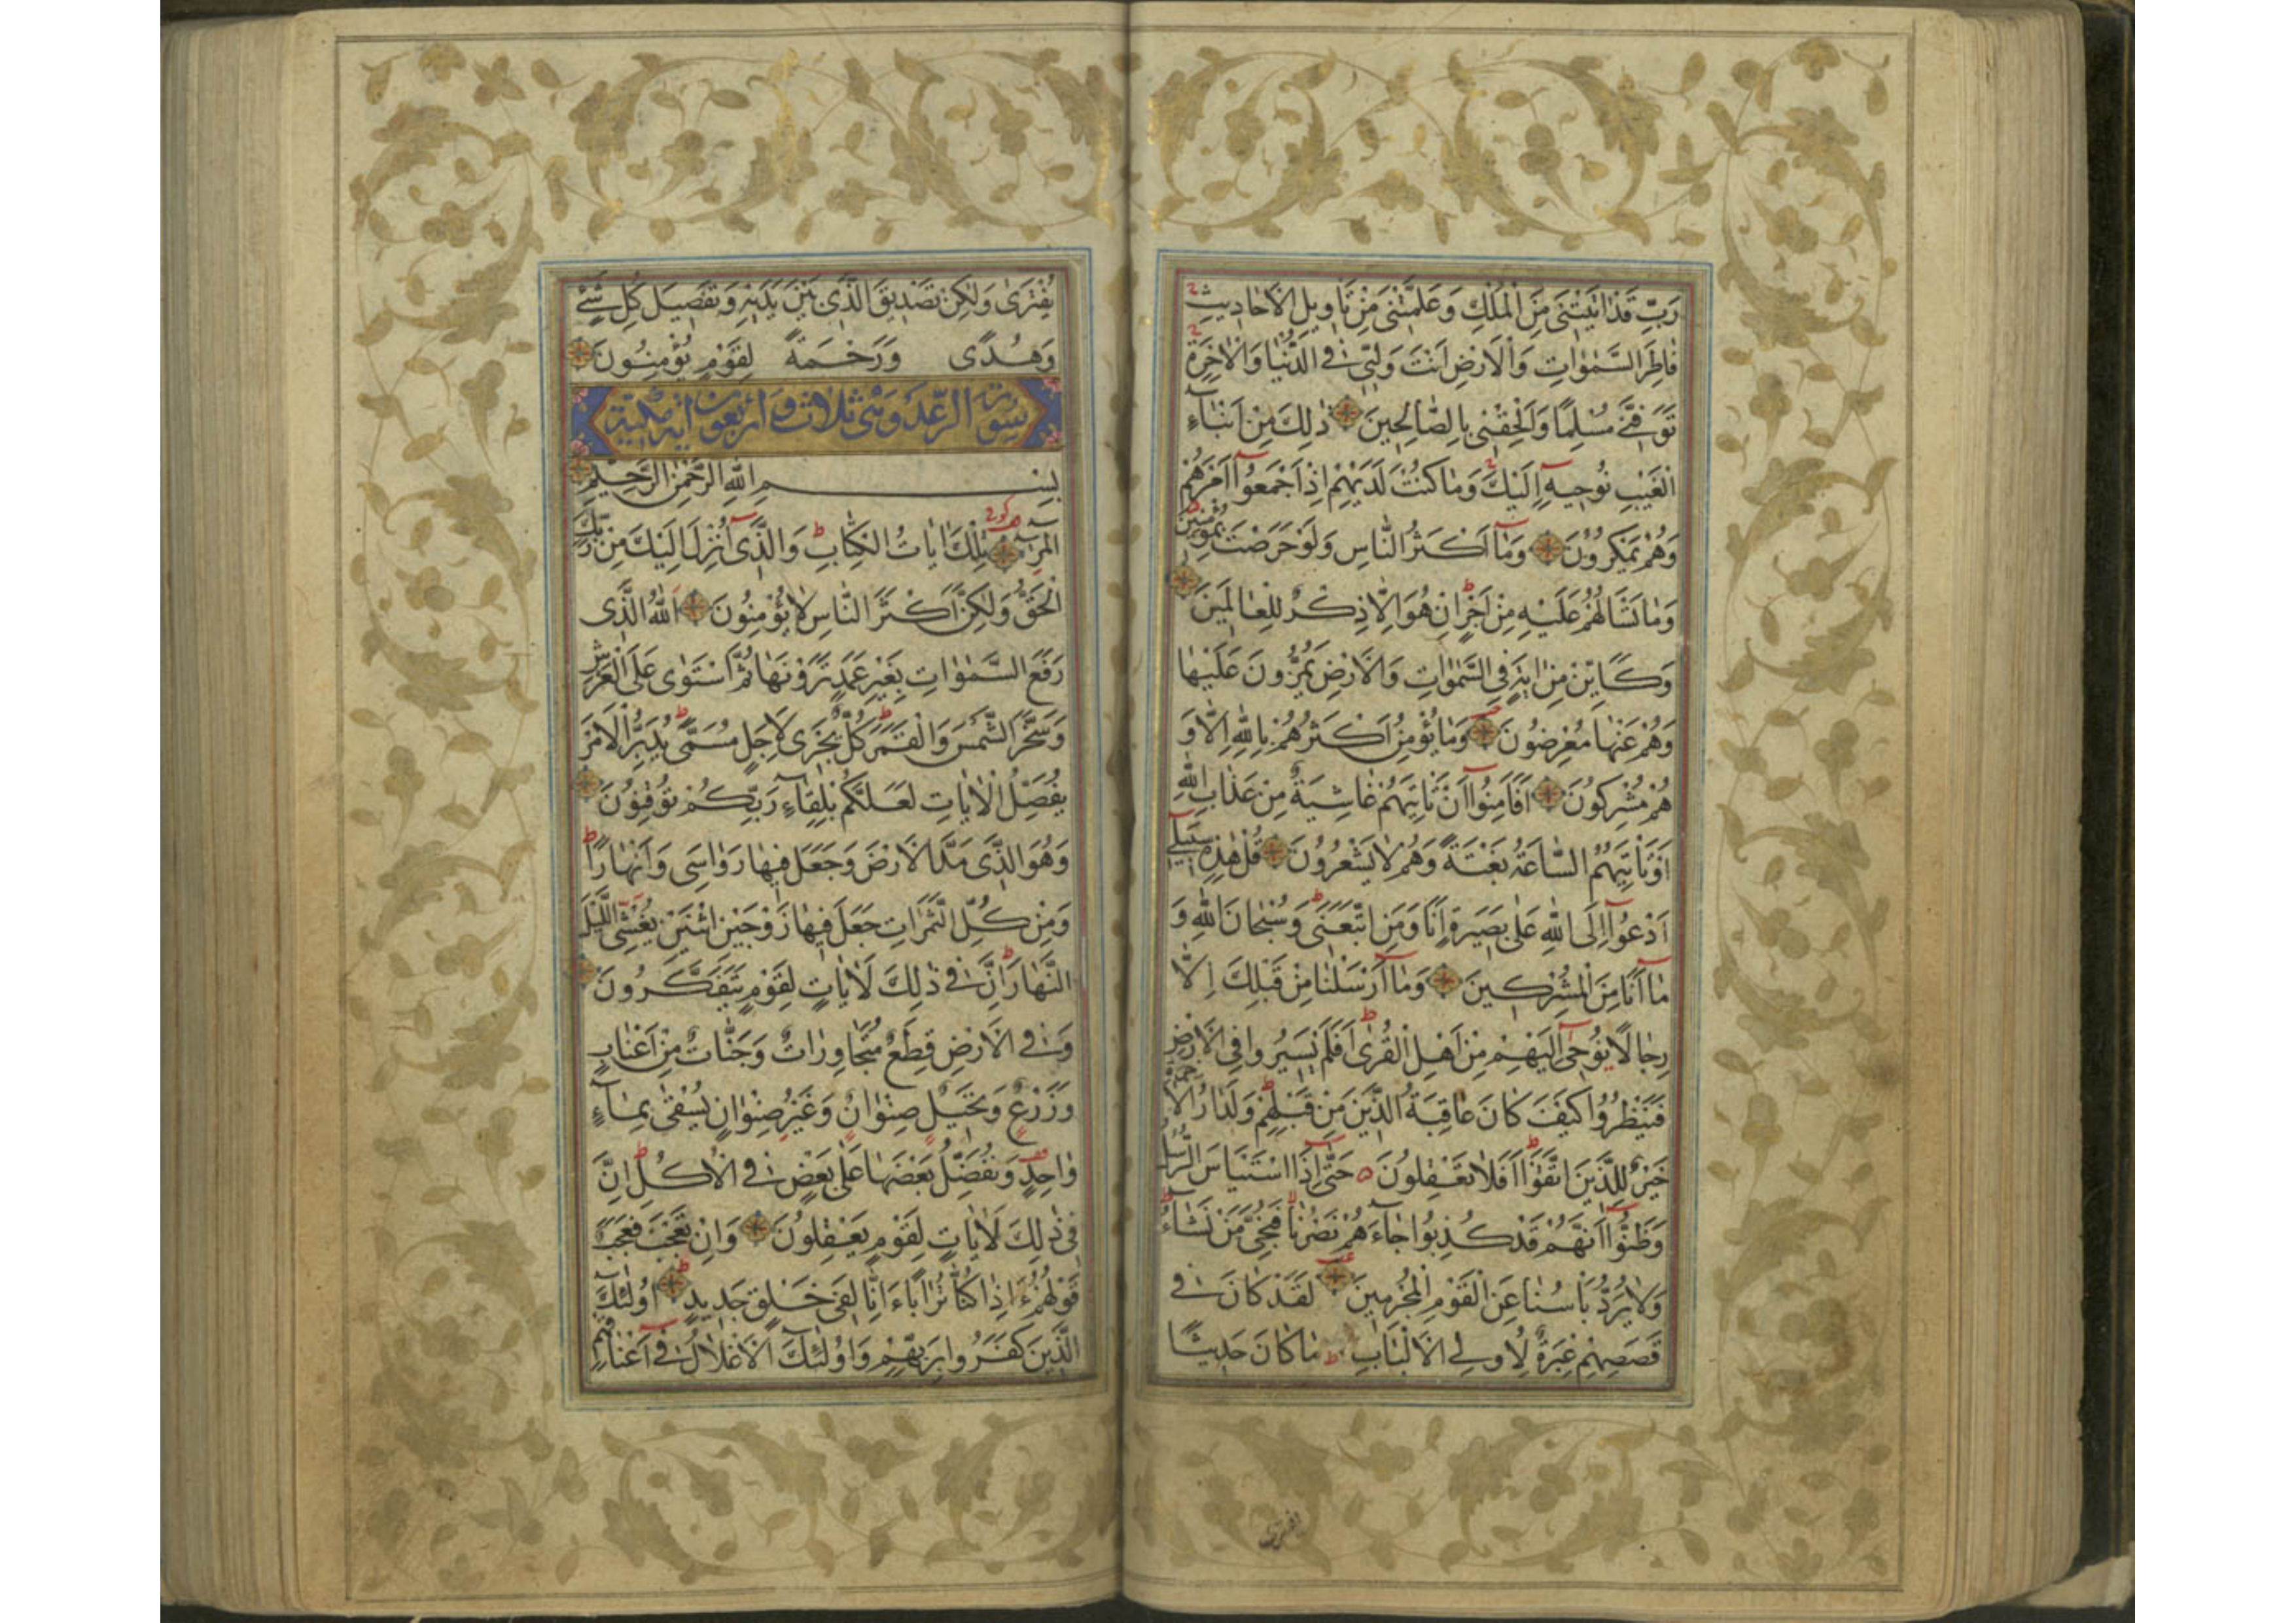 رَبِّ قَدْ اٰتَيْتَنى مِنَ الْمُلْكِ وَعَلَّمْتَنى مِنْ تَاْويلِ الْاَحاديثِ
فاطِرَ السَّمٰوٰاتِ وَالْاَرْضِ اَنْتَ وَلِيّى فِى الدُّنْيا وَالْاٰخِرَةِ
تَوَفَّنى مُسْلِمًا وَاَلْحِقْنى بِالصّالِحينَ ذٰلِكَ مِنْ اَنْبآءِ
الْغَيْبِ نُوحيهِ اِلَيْكَ وَمٰا كُنْتَ لَدَيْهِمْ اِذْ اَجْمَعُوآ اَمْرَهُمْ
وَهُمْ يَمْكُرُونَ وَمٰآ اَكْثَرُ النّاسِ وَلَوْ حَرَصْتَ بِمُؤْمِنينَ
وَمٰا تَسْئَلُهُمْ عَلَيْهِ مِنْ اَجْرٍ اِنْ هُوَ اِلّا ذِكْرٌ لِلْعٰالَمينَ
وَكَاَيِّنْ مِنْ اٰيَةٍ فِى السَّمٰوٰاتِ وَالْاَرْضِ يَمُرُّونَ عَلَيْهٰا
وَهُمْ عَنْهٰا مُعْرِضُونَ وَمٰا يُؤْمِنُ اَكْثَرُهُمْ بِاللهِ اِلّا وَ
هُمْ مُشْرِكُونَ اَفَاَمِنُوآ اَنْ تَاْتِيَهُمْ غٰاشِيَةٌ مِنْ عَذٰابِ اللهِ
اَوْ تَاْتِيَهُمُ السّاعَةُ بَغْتَةً وَهُمْ لٰا يَشْعُرُونَ قُلْ هٰذِهِ سَبيلى
اَدْعُوآ اِلَى اللهِ عَلٰى بَصيرَةٍ اَنَا وَمَنِ اتَّبَعَنى وَسُبْحٰانَ اللهِ وَ
مٰآ اَنَا مِنَ الْمُشْرِكينَ وَمٰآ اَرْسَلْنٰا مِنْ قَبْلِكَ اِلّا
رِجٰالًا نُوحى اِلَيْهِمْ مِنْ اَهْلِ الْقُرٰى اَفَلَمْ يَسيرُوا فِى الْاَرْضِ
فَيَنْظُرُوا كَيْفَ كٰانَ عٰاقِبَةُ الَّذينَ مِنْ قَبْلِهِمْ وَلَدٰارُ الْاٰخِرَةِ
خَيْرٌ لِلَّذينَ اتَّقَوْا اَفَلٰا تَعْقِلُونَ حَتّٰى اِذَا اسْتَيْاَسَ الرُّسُلُ
وَظَنُّوآ اَنَّهُمْ قَدْ كُذِبُوا جٰآءَهُمْ نَصْرُنٰا فَنُجِّىَ مَنْ نَشٰآءُ
وَلٰا يُرَدُّ بَاْسُنٰا عَنِ الْقَوْمِ الْمُجْرِمينَ لَقَدْ كٰانَ فى
قَصَصِهِمْ عِبْرَةٌ لِاُولِى الْاَلْبٰابِ مٰا كٰانَ حَديثًا
يفترى
يُفْتَرٰى وَلٰكِنْ تَصْديقَ الَّذى بَيْنَ يَدَيْهِ وَتَفْصيلَ كُلِّ شَىْءٍ
وَهُدًى وَرَحْمَةً لِقَوْمٍ يُؤْمِنُونَ
سورة الرعد وهى ثلاث واربعون اية مكية
بِسْمِ اللهِ الرَّحْمٰنِ الرَّحيمِ
الٓمٓرٰ تِلْكَ اٰيٰاتُ الْكِتٰابِ وَالَّذى اُنْزِلَ اِلَيْكَ مِنْ رَبِّكَ
الْحَقُّ وَلٰكِنَّ اَكْثَرَ النّاسِ لٰا يُؤْمِنُونَ اَللهُ الَّذى
رَفَعَ السَّمٰوٰاتِ بِغَيْرِ عَمَدٍ تَرَوْنَهٰا ثُمَّ اسْتَوٰى عَلَى الْعَرْشِ
وَسَخَّرَ الشَّمْسَ وَالْقَمَرَ كُلٌّ يَجْرى لِاَجَلٍ مُسَمًّى يُدَبِّرُ الْاَمْرَ
يُفَصِّلُ الْاٰيٰاتِ لَعَلَّكُمْ بِلِقٰآءِ رَبِّكُمْ تُوقِنُونَ
وَهُوَ الَّذى مَدَّ الْاَرْضَ وَجَعَلَ فيهٰا رَوٰاسِىَ وَاَنْهٰارًا
وَمِنْ كُلِّ الثَّمَرٰاتِ جَعَلَ فيهٰا زَوْجَيْنِ اثْنَيْنِ يُغْشِى اللَّيْلَ
النَّهٰارَ اِنَّ فى ذٰلِكَ لَاٰيٰاتٍ لِقَوْمٍ يَتَفَكَّرُونَ
وَفِى الْاَرْضِ قِطَعٌ مُتَجٰاوِرٰاتٌ وَجَنّٰاتٌ مِنْ اَعْنٰابٍ
وَزَرْعٌ وَنَخيلٌ صِنْوٰانٌ وَغَيْرُ صِنْوٰانٍ يُسْقٰى بِمٰآءٍ
وٰاحِدٍ وَنُفَضِّلُ بَعْضَهٰا عَلٰى بَعْضٍ فِى الْاُكُلِ اِنَّ
فى ذٰلِكَ لَاٰيٰاتٍ لِقَوْمٍ يَعْقِلُونَ وَاِنْ تَعْجَبْ فَعَجَبٌ
قَوْلُهُمْ ءَاِذٰا كُنّٰا تُرٰابًا ءَاِنّٰا لَفى خَلْقٍ جَديدٍ اُولٰٓئِكَ
الَّذينَ كَفَرُوا بِرَبِّهِمْ وَاُولٰٓئِكَ الْاَغْلٰالُ فى اَعْنٰاقِهِمْ